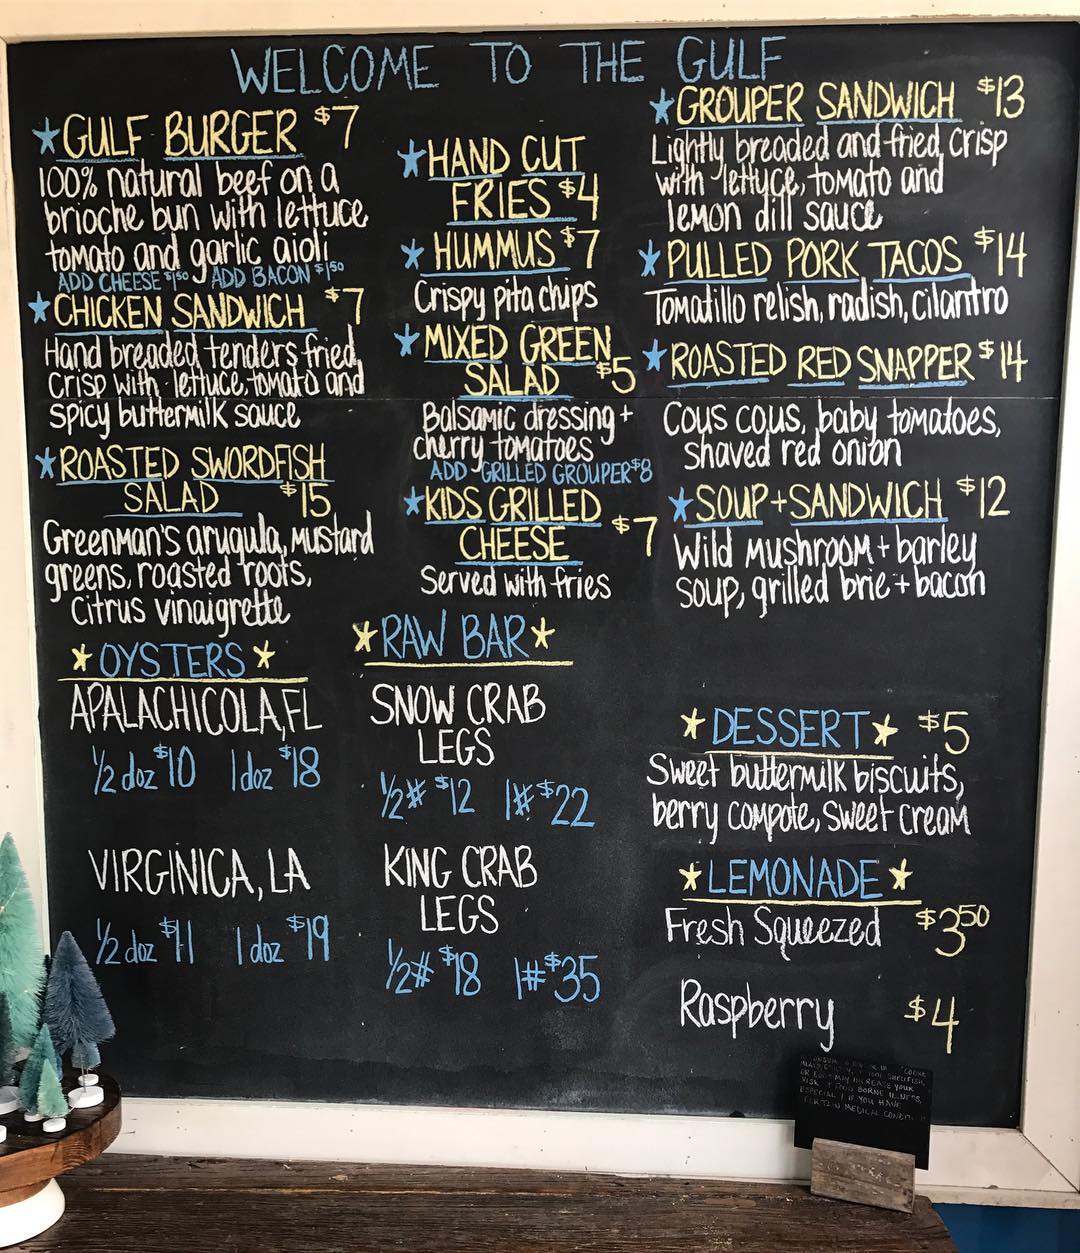 WELCOME TO THE GULF
GULF BURGER $7
100% natural beef on a
brioche bun with lettuce,
tomato and garlic aioli
ADD CHEESE $1.50 ADD BACON $1.50
CHICKEN SANDWICH $7
Hand breaded tenders fried,
crisp with lettuce, tomato and
spicy buttermilk sauce
ROASTED SWORDFISH
SALAD $15
Greenman's arugula, mustard
greens, roasted roots,
Citrus vinaigrette
OYSTERS
APALACHICOLA, FL
1/2 doz $10 1 doz $18
VIRGINICA, LA
1/2 doz $11 1 doz $19
HAND CUT
FRIES $4
HUMMUS $7
Crispy pita chips
MIXED GREEN
SALAD $5
Balsamic dressing +
cherry tomatoes
ADD GRILLED GROUPER $8
KIDS GRILLED
CHEESE $7
Served with fries
RAW BAR
SNOW CRAB
LEGS
1/2# $12 1# $22
KING CRAB
LEGS
1/2# $18 1# $35
GROUPER SANDWICH $13
Lightly breaded and fried crisp
with lettuce, tomato and
lemon dill sauce
PULLED PORK TACOS $14
Tomatillo relish, radish, cilantro
ROASTED RED SNAPPER $14
Cous cous, baby tomatoes,
shaved red onion
SOUP + SANDWICH $12
Wild mushroom + barley
soup, grilled brie + bacon
DESSERT $5
Sweet buttermilk biscuits,
berry compote, sweet cream
LEMONADE
Fresh Squeezed $3.50
Raspberry $4
SHELLFISH,
MAY INCREASE YOUR
RISK FOOD BORNE ILLNESS,
IF YOU HAVE
CERTAIN MEDICAL